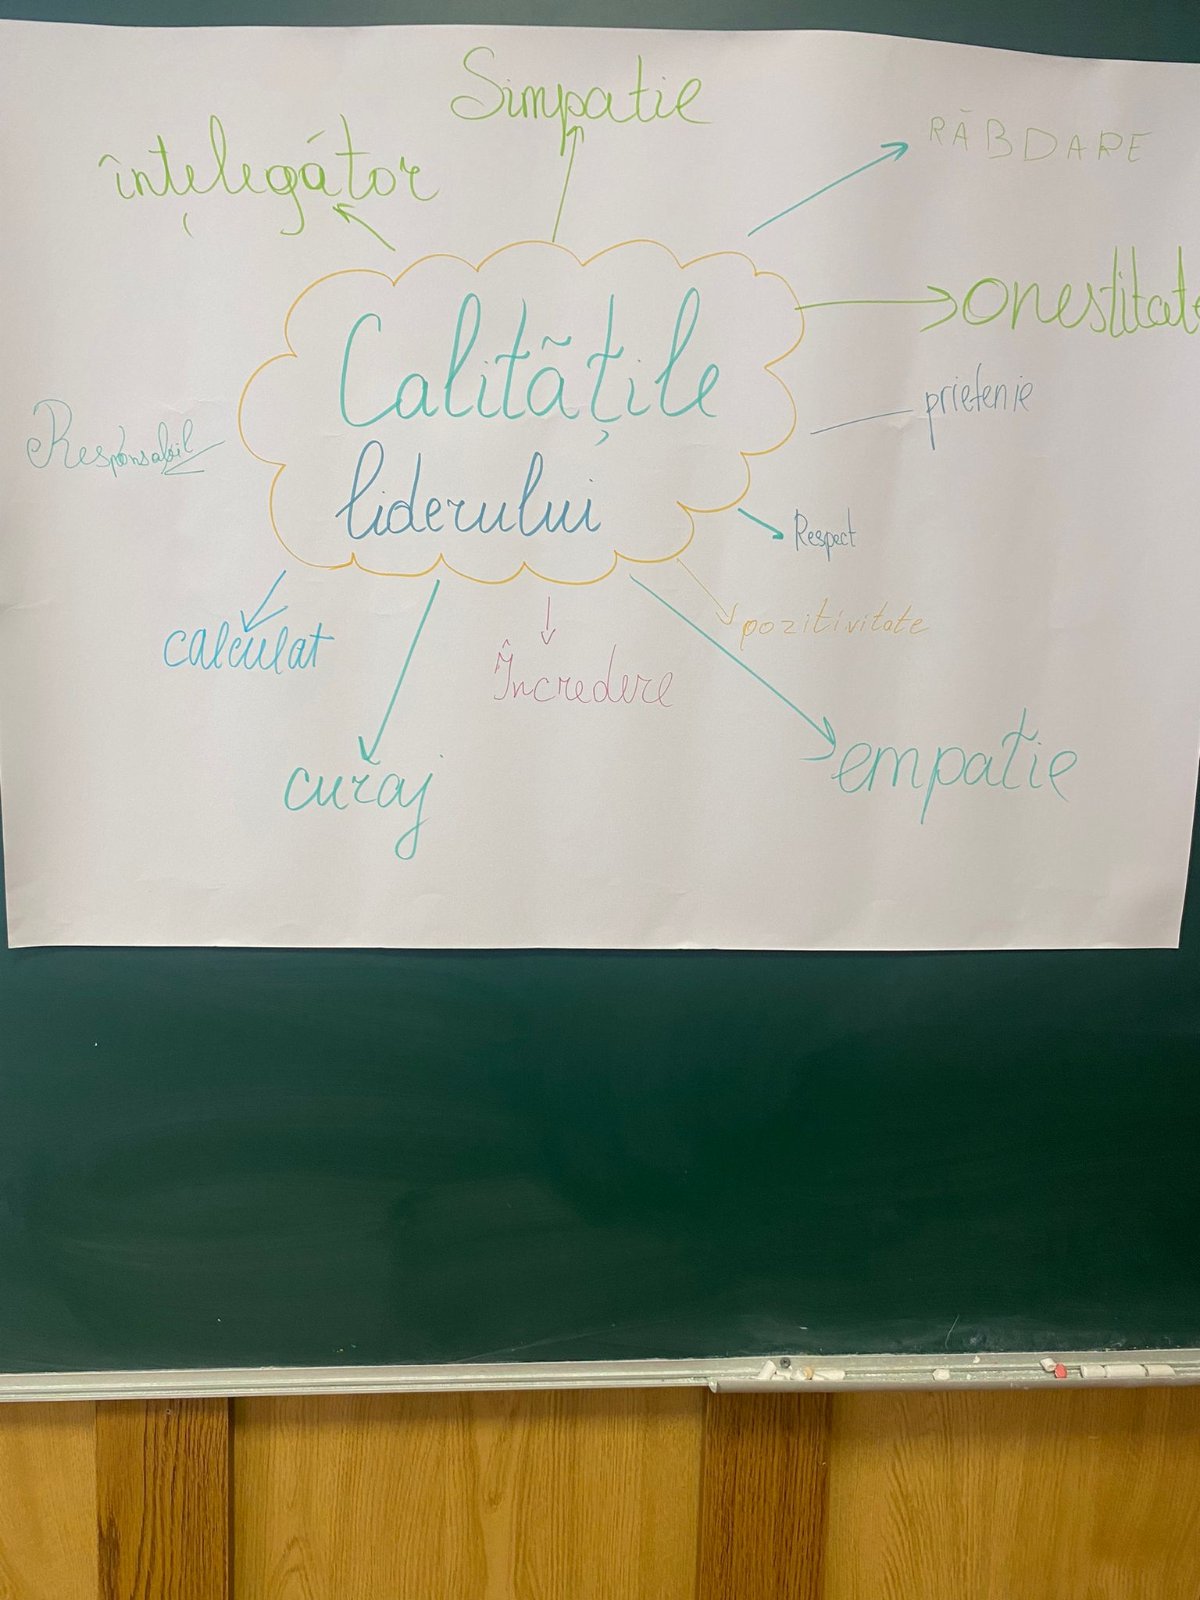 Simpatie
înțelegător
RĂBDARE
onestitate
Calitățile
liderului
prietenie
Responsabil
Respect
pozitivitate
calculat
Încredere
curaj
empatie